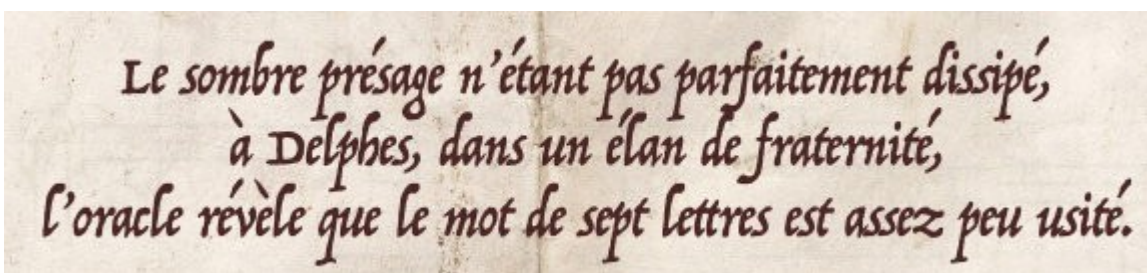 Le sombre présage n'étant pas parfaitement dissipé,
à Delphes, dans un élan de fraternité,
l'oracle révèle que le mot de sept lettres est assez peu usité.